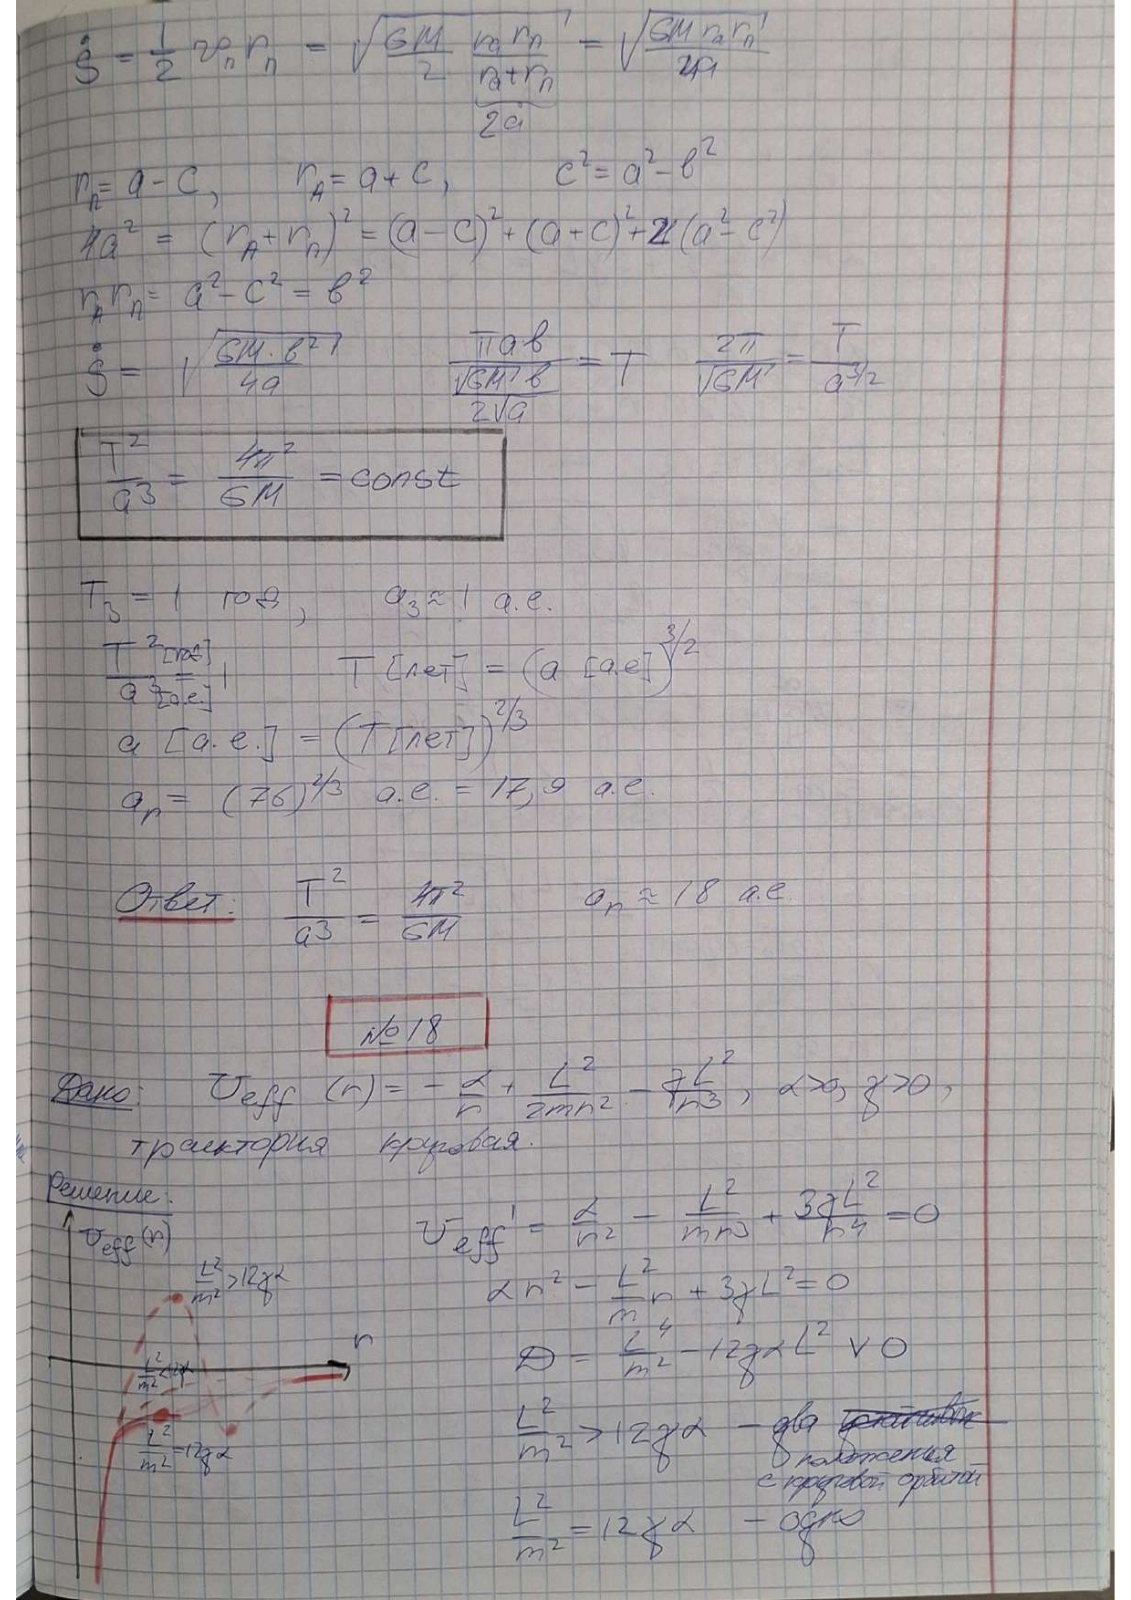 Ṡ = 1/2 υ_п r_п = √(GM/2 · r_a r_п/(r_a + r_п)) = √(GM r_a r_п/4a)
2a
r_п = a - c, r_A = a + c, c² = a² - b²
4a² = (r_A + r_п)² = (a - c)² + (a + c)² + 2(a² - c²)
r_A r_п = a² - c² = b²
Ṡ = √(GM · b²/4a) πab/(√GM b/2√a) = T 2π/√GM = T/a^(3/2)
T²/a³ = 4π²/GM = const
T_З = 1 год, a_З ≈ 1 а.е.
T² [год]/a³ [а.е.] = 1 T [лет] = (a [а.е])^(3/2)
a [а.е.] = (T [лет])^(2/3)
a_г = (76)^(2/3) а.е. = 17,9 а.е.
Ответ: T²/a³ = 4π²/GM a_г ≈ 18 а.е
№18
Дано: U_eff (r) = - α/r + L²/2mr² - γL²/r³, α>0, γ>0,
траектория круговая.
Решение:
U_eff' = α/r² - L²/mr³ + 3γL²/r⁴ = 0
U_eff(r)
L²/m² > 12γα
αr² - L²/m r + 3γL² = 0
r
D = L⁴/m² - 12γαL² ∨ 0
L²/m² < 12γα
L²/m² > 12γα - два
положения
с круговой орбитой
L²/m² = 12γα
L²/m² = 12γα - одно